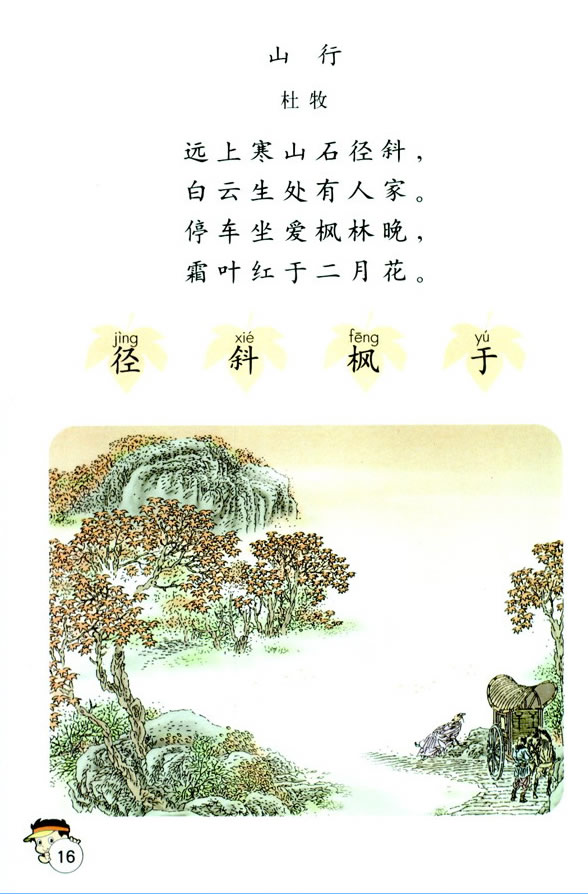 山 行
杜牧
远上寒山石径斜，
白云生处有人家。
停车坐爱枫林晚，
霜叶红于二月花。
jìng xié fēng yú
径 斜 枫 于
16